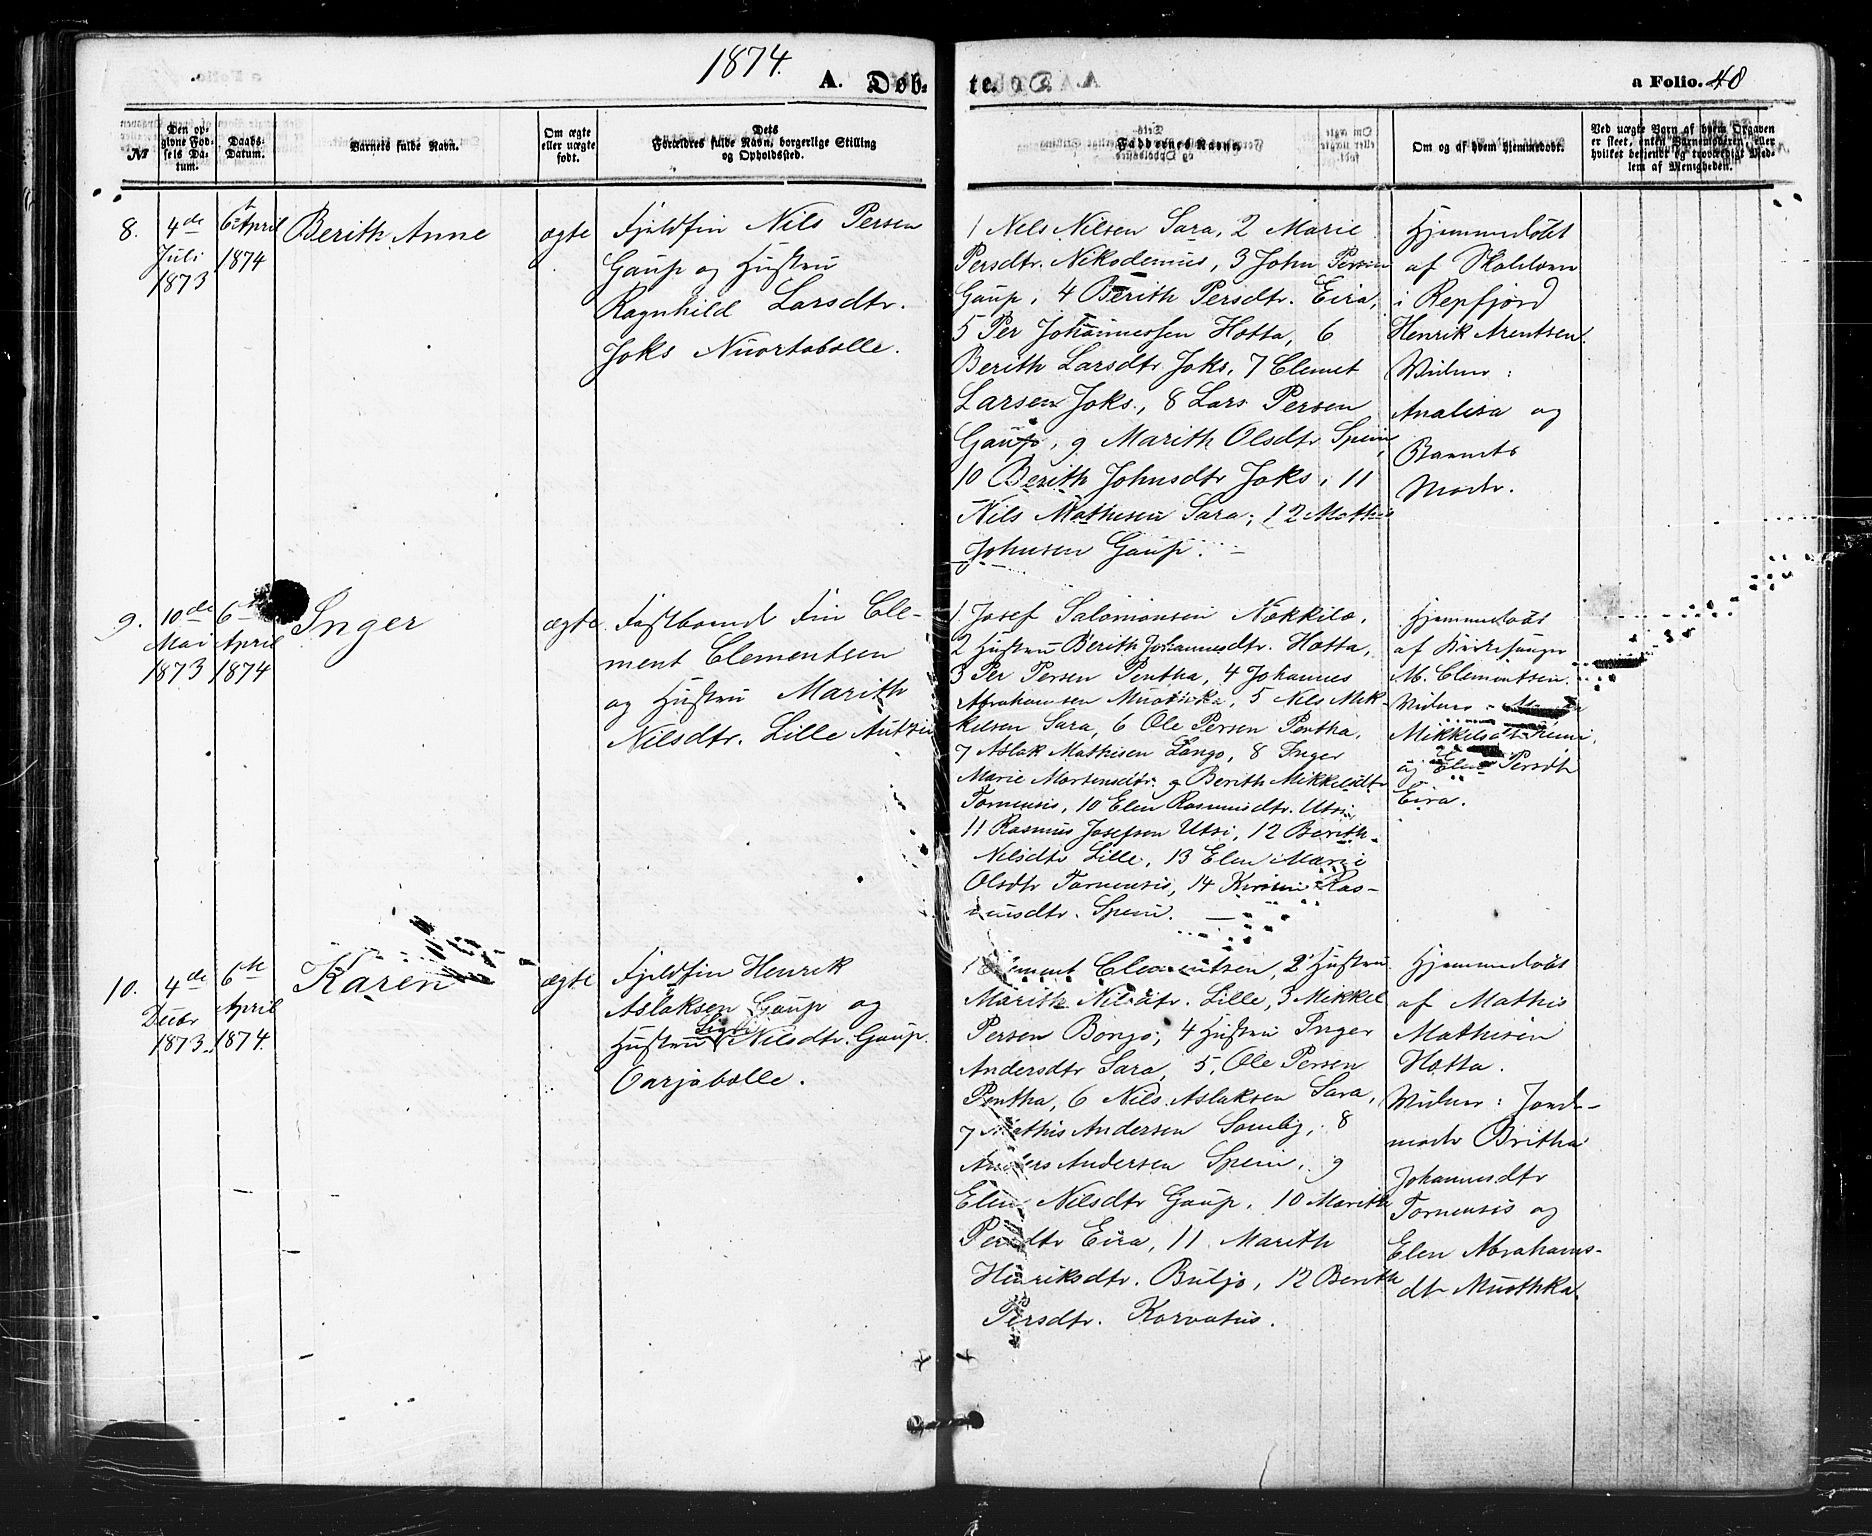 1874.
A. Døb-
te.
a Folio. 48
№
Den op-
givne Fød-
sels Da-
tum.
Daabs-
Datum.
Barnets fulde Navn.
Om ægte
eller uægte
født.
Dets
Forældres fulde Navn, borgerlige Stilling
og Opholdssted.
Faddernes Navne
Om og af hvem hjemmedøbt.
Ved uægte Barn af hvem Opgaven
er skeet, enten Barnemoderen eller
hvilket bekjendt og troværdigt Med-
lem af Menigheden.
8.
4de
Juli
1873
6te April
1874
Berith Anne
ægte
Fjeldfin Nils Persen
Gaup og Hustru
Ragnhild Larsdtr.
Joks Nuortabelle.
1 Nels Nilsen Sara, 2 Marie
Persdtr. Nikodemus, 3 John Persen
Gaup, 4 Berith Persdtr. Eira,
5 Per Johannessen Hætta, 6
Berith Larsdtr Joks, 7 Clemet
Larsen Joks, 8 Lars Persen
Gaup, 9 Marith Olsdtr Spein,
10 Berith Johnsdtr Joks, 11
Nils Mathisen Sara, 12 Mathis
Johnsen Gaup. —
Hjemmedøbt
af
i Repfjord
Henrik Arentsen.
Vidner:
Analisa og
Barnets
Moder.
9.
10de
Mai
1873
6te
April
1874
Inger
ægte
Fastboend Fin Cle-
ment Clementsen
og Hustru Marith
Nilsdtr. Lille Autsi
1 Josef Salomonsen Nækkilæ,
2 Hustru Berith Johannesdtr. Hætta,
3 Per Persen Pentha, 4 Johannes
Abrahamsen Muotkka, 5 Nels Mik-
kelsen Sara, 6 Ole Persen Pentha,
7 Aslak Mathisen Lango, 8 Inger
Marie Mortensdtr. 9 Berith Mikkelsdtr
Tornensis, 10 Elen Rasmusdtr. Utsi,
11 Rasmus Josefsen Utsi, 12 Berith
Nilsdtr Lille, 13 Elen Marie
Olsdtr Tornensis, 14 Kirsten Ras-
musdtr. Spein. —
Hjemmedøbt
af Kirkesanger
M. Clementsen.
Vidner:
Mikkelsdtr
og Elen Persdtr
Eira.
10.
4de
Decbr
1873.
6te
April
1874.
Karen
ægte
Fjeldfin Henrik
Aslaksen Gaup og
Hustru Nilsdtr. Gaup.
Oarjebelle.
1 Clement Clementsen, 2 Hustru
Marith Nilsdtr. Lille, 3 Mikkel
Persen Bongo, 4 Hustru Inger
Andersdtr Sara, 5, Ole Persen
Pentha, 6 Nils Aslaksen Sara,
7 Mathis Andersen Somby, 8
Anders Andersen Spein, 9
Elen Nilsdtr Gaup, 10 Marith
Persdtr Eira, 11 Marith
Henriksdtr. Buljo, 12 Berith
Persdtr. Korvatus.
Hjemmedøbt
af Mathis
Mathisen
Hætta.
Vidner: Jord-
moder Britha
Johannesdtr
Tornensis og
Elen Abrahams-
dtr Muothka.